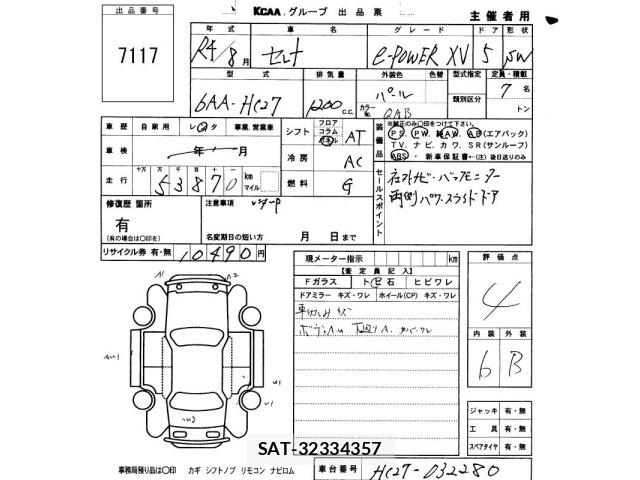 出品番号
KCAA.グループ 出品票
主催者用
7117
年式 車名 グレード ドア 形状
R4/8月 セレナ e-POWER XV 5 SW
型式 排気量 外装色 色替 型式指定 定員・積載
6AA-HC27 1200 c.c. パール カラーNo. QAB 類別区分 7名
トン
車歴 自家用 レンタ 事業.営業車
シフト フロア コラム パネル AT
装備品
※純正のみ○印をつけて下さい。
PS. PW. 純AW. AB (エアバック)
TV. ナビ. カワ. SR(サンルーフ)
ABS ・新車保証書←(注) 後日送りのみ
車検 年 月
冷房 AC
走行 十万 万 千 百 十 km マイル
53870
燃料 G
セールスポイント
社外ナビ・バックモニター
両側パワースライドドア
修復歴 箇所
有
(有の場合は○印を)
注意事項
名変期日の短い方 月 日まで
リサイクル券 有・無 10490円
現メーター指示 km
評価点
4
【査定員記入】
Fガラス トビ石 ヒビワレ
ドアミラー キズ・ワレ ホイール(CP) キズ・ワレ
内装 外装
6 B
A1 A2
AW1
U1
U1
U3
ジャッキ 有・無
工具 有・無
スペアタイヤ 有・無
SAT-32334357
事務局預り品は○印 カギ シフトノブ リモコン ナビロム
車台番号 HC27-032280